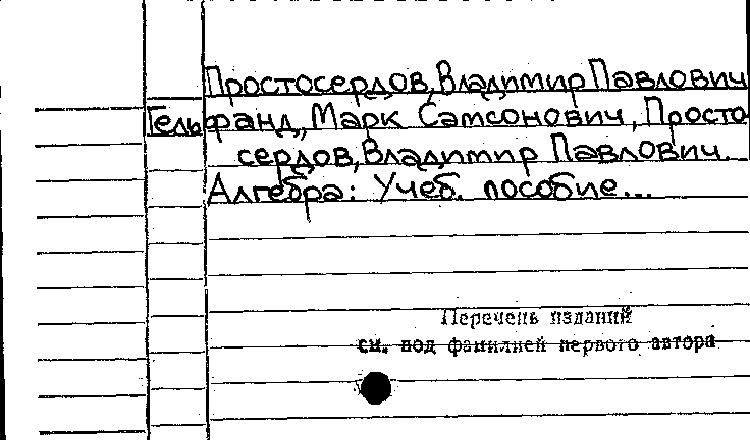 Простосердов, Владимир Павлович
Гельфанд, Марк Самсонович, Просто-
сердов, Владимир Павлович.
Алгебра: Учеб. пособие...
Перечень изданий
см. под фамилией первого автора